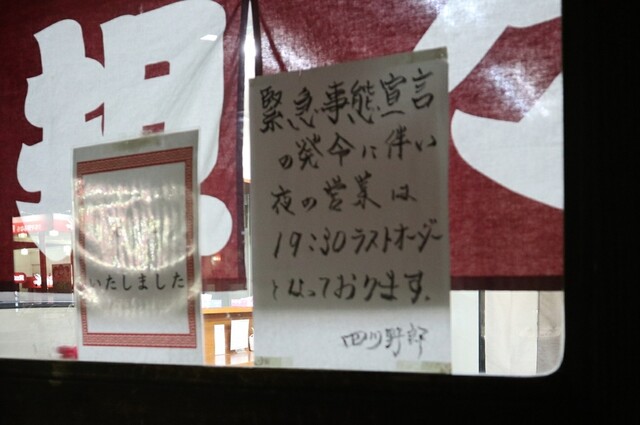 緊急事態宣言
の発令に伴い
夜の営業は
19:30ラストオーダー
となっております.
四川野郎
いたしました
担